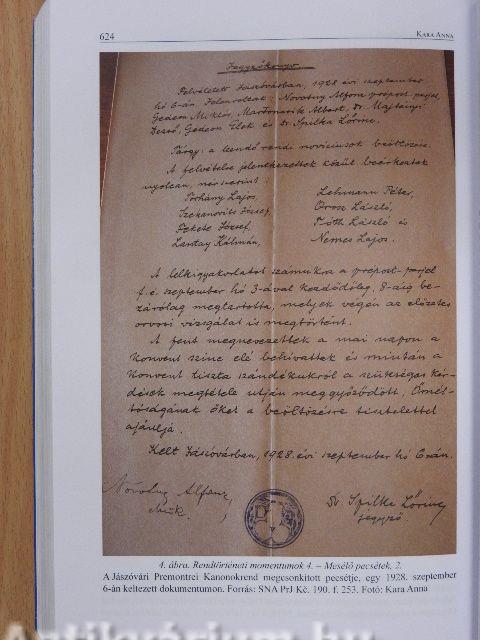 624
KARA ANNA
Jegyzőkönyv
Felvétetett Jászóvárban, 1928 évi szeptember
hó 6-án. Jelenvoltak: Novotny Alfonz prépost-perjel,
Gedeon Miklós, Albert, Dr. Majtényi
Dezső, Gedeon Elek és Dr. Spilka Lőrinc.
Tárgy: a leendő rendi noviciusok beöltözése.
A felvételre jelentkezettek közül beérkeztek
nyolcan, nevszerint:
Torhány Lajos,
Szekanovits József,
Fekete József,
Lantay Kálmán,
Lehmann Péter,
Orosz László,
Tóth László és
Nemes Lajos.
A lelkigyakorlatot számukra a prépost-perjel
f. é. szeptember hó 3-ával kezdődőleg, 8-áig be-
zárólag megtartotta, melyek végén az előzetes
orvosi vizsgálat is megtörtént.
A fent megnevezettek a mai napon a
Konvent színe elé behivattak és miután a
Konvent tiszta szándékukról a szükséges kér-
dések megtétele utján meggyőződött, Őmél-
tóságának őket a beöltözésre tisztelettel
ajánlja.
Kelt Jászóvárban, 1928. évi szeptember hó 6-án.
Novotny Alfonz
elnök.
Dr. Spilka Lőrinc
jegyző
4. ábra. Rendtörténeti momentumok 4. – Mesélő pecsétek, 2.
A Jászóvári Premontrei Kanonokrend megcsonkított pecsétje, egy 1928. szeptember
6-án keltezett dokumentumon. Forrás: SNA PrJ Kč. 190. f. 253. Fotó: Kara Anna
Antikvárium.hu